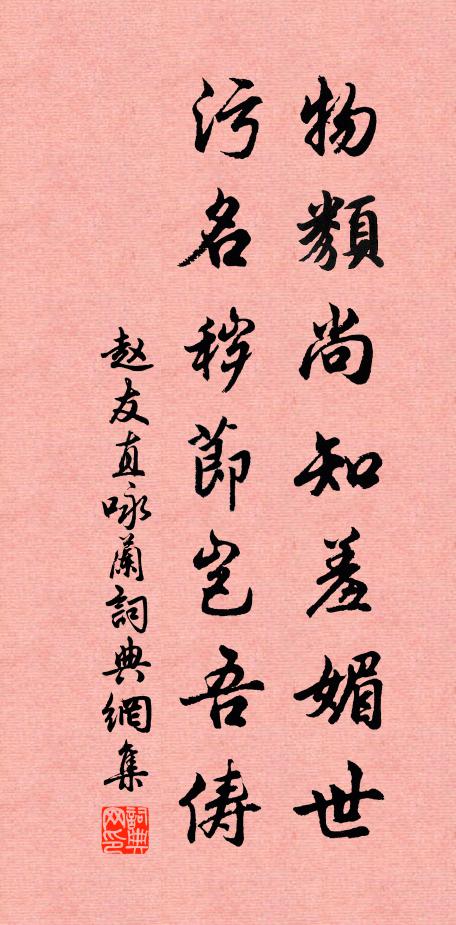 物類尚知羞媚世
污名秽節岂吾俦
赵友直咏蘭詞典網集
詞典
网印